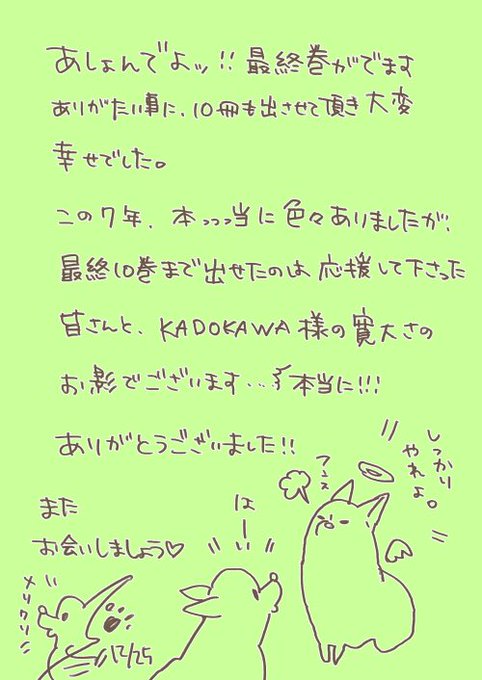 あしょんでよッ!! 最終巻がでます
ありがたい事に、10冊も出させて頂き大変
幸せでした。
この7年、本っっっ当に色々ありましたが、
最終10巻まで出せたのは、応援して下さった
皆さんと、KADOKAWA様の寛大さの
お影でございます…本当に!!!
ありがとうございました!!
また
お会いしましょう♡
しっかり
やれよ。
フンス
はーい
メリクリ!!
12/25